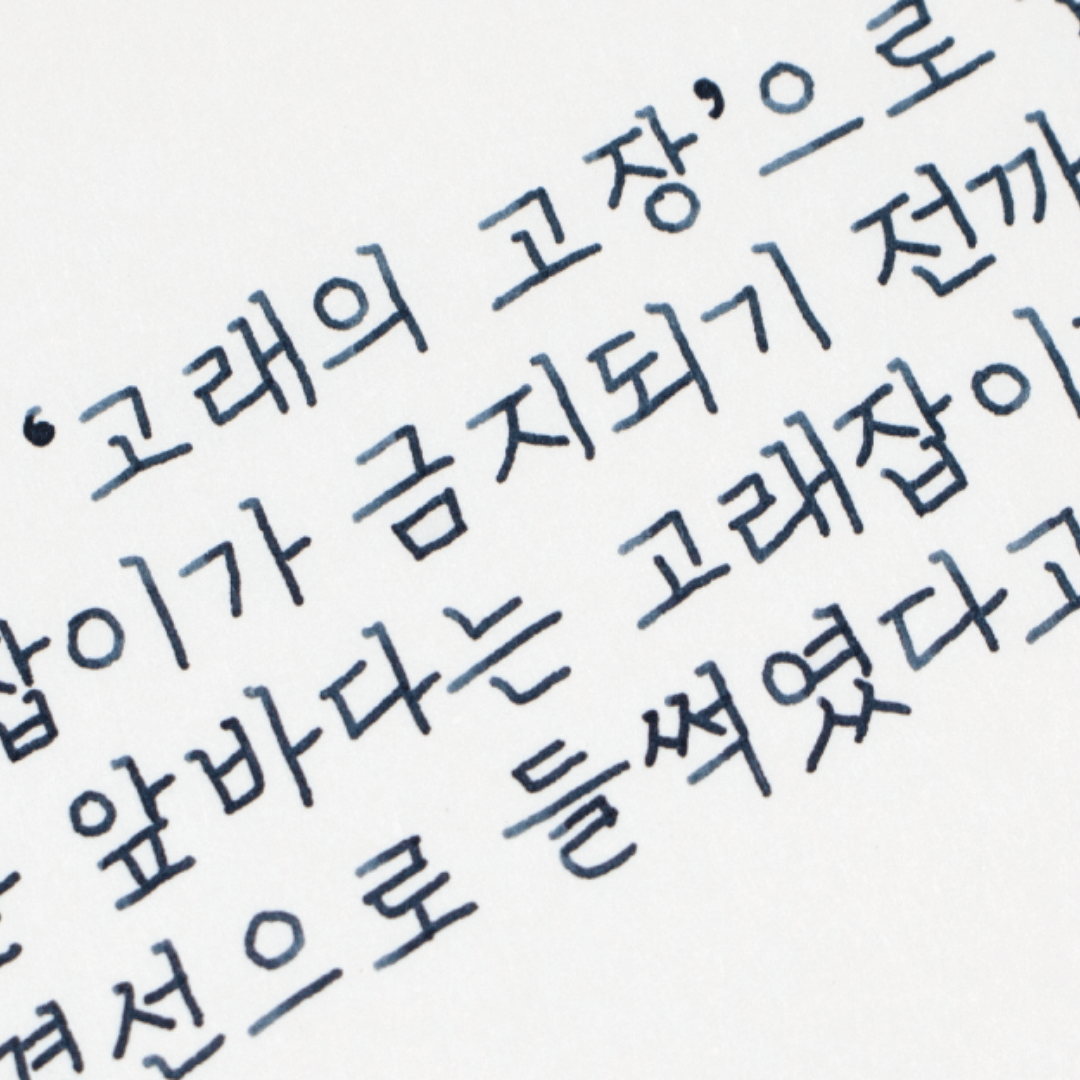 ‘고래의 고장’으로
잡이가 금지되기 전까
앞바다는 고래잡이
경선으로 들썩였다고